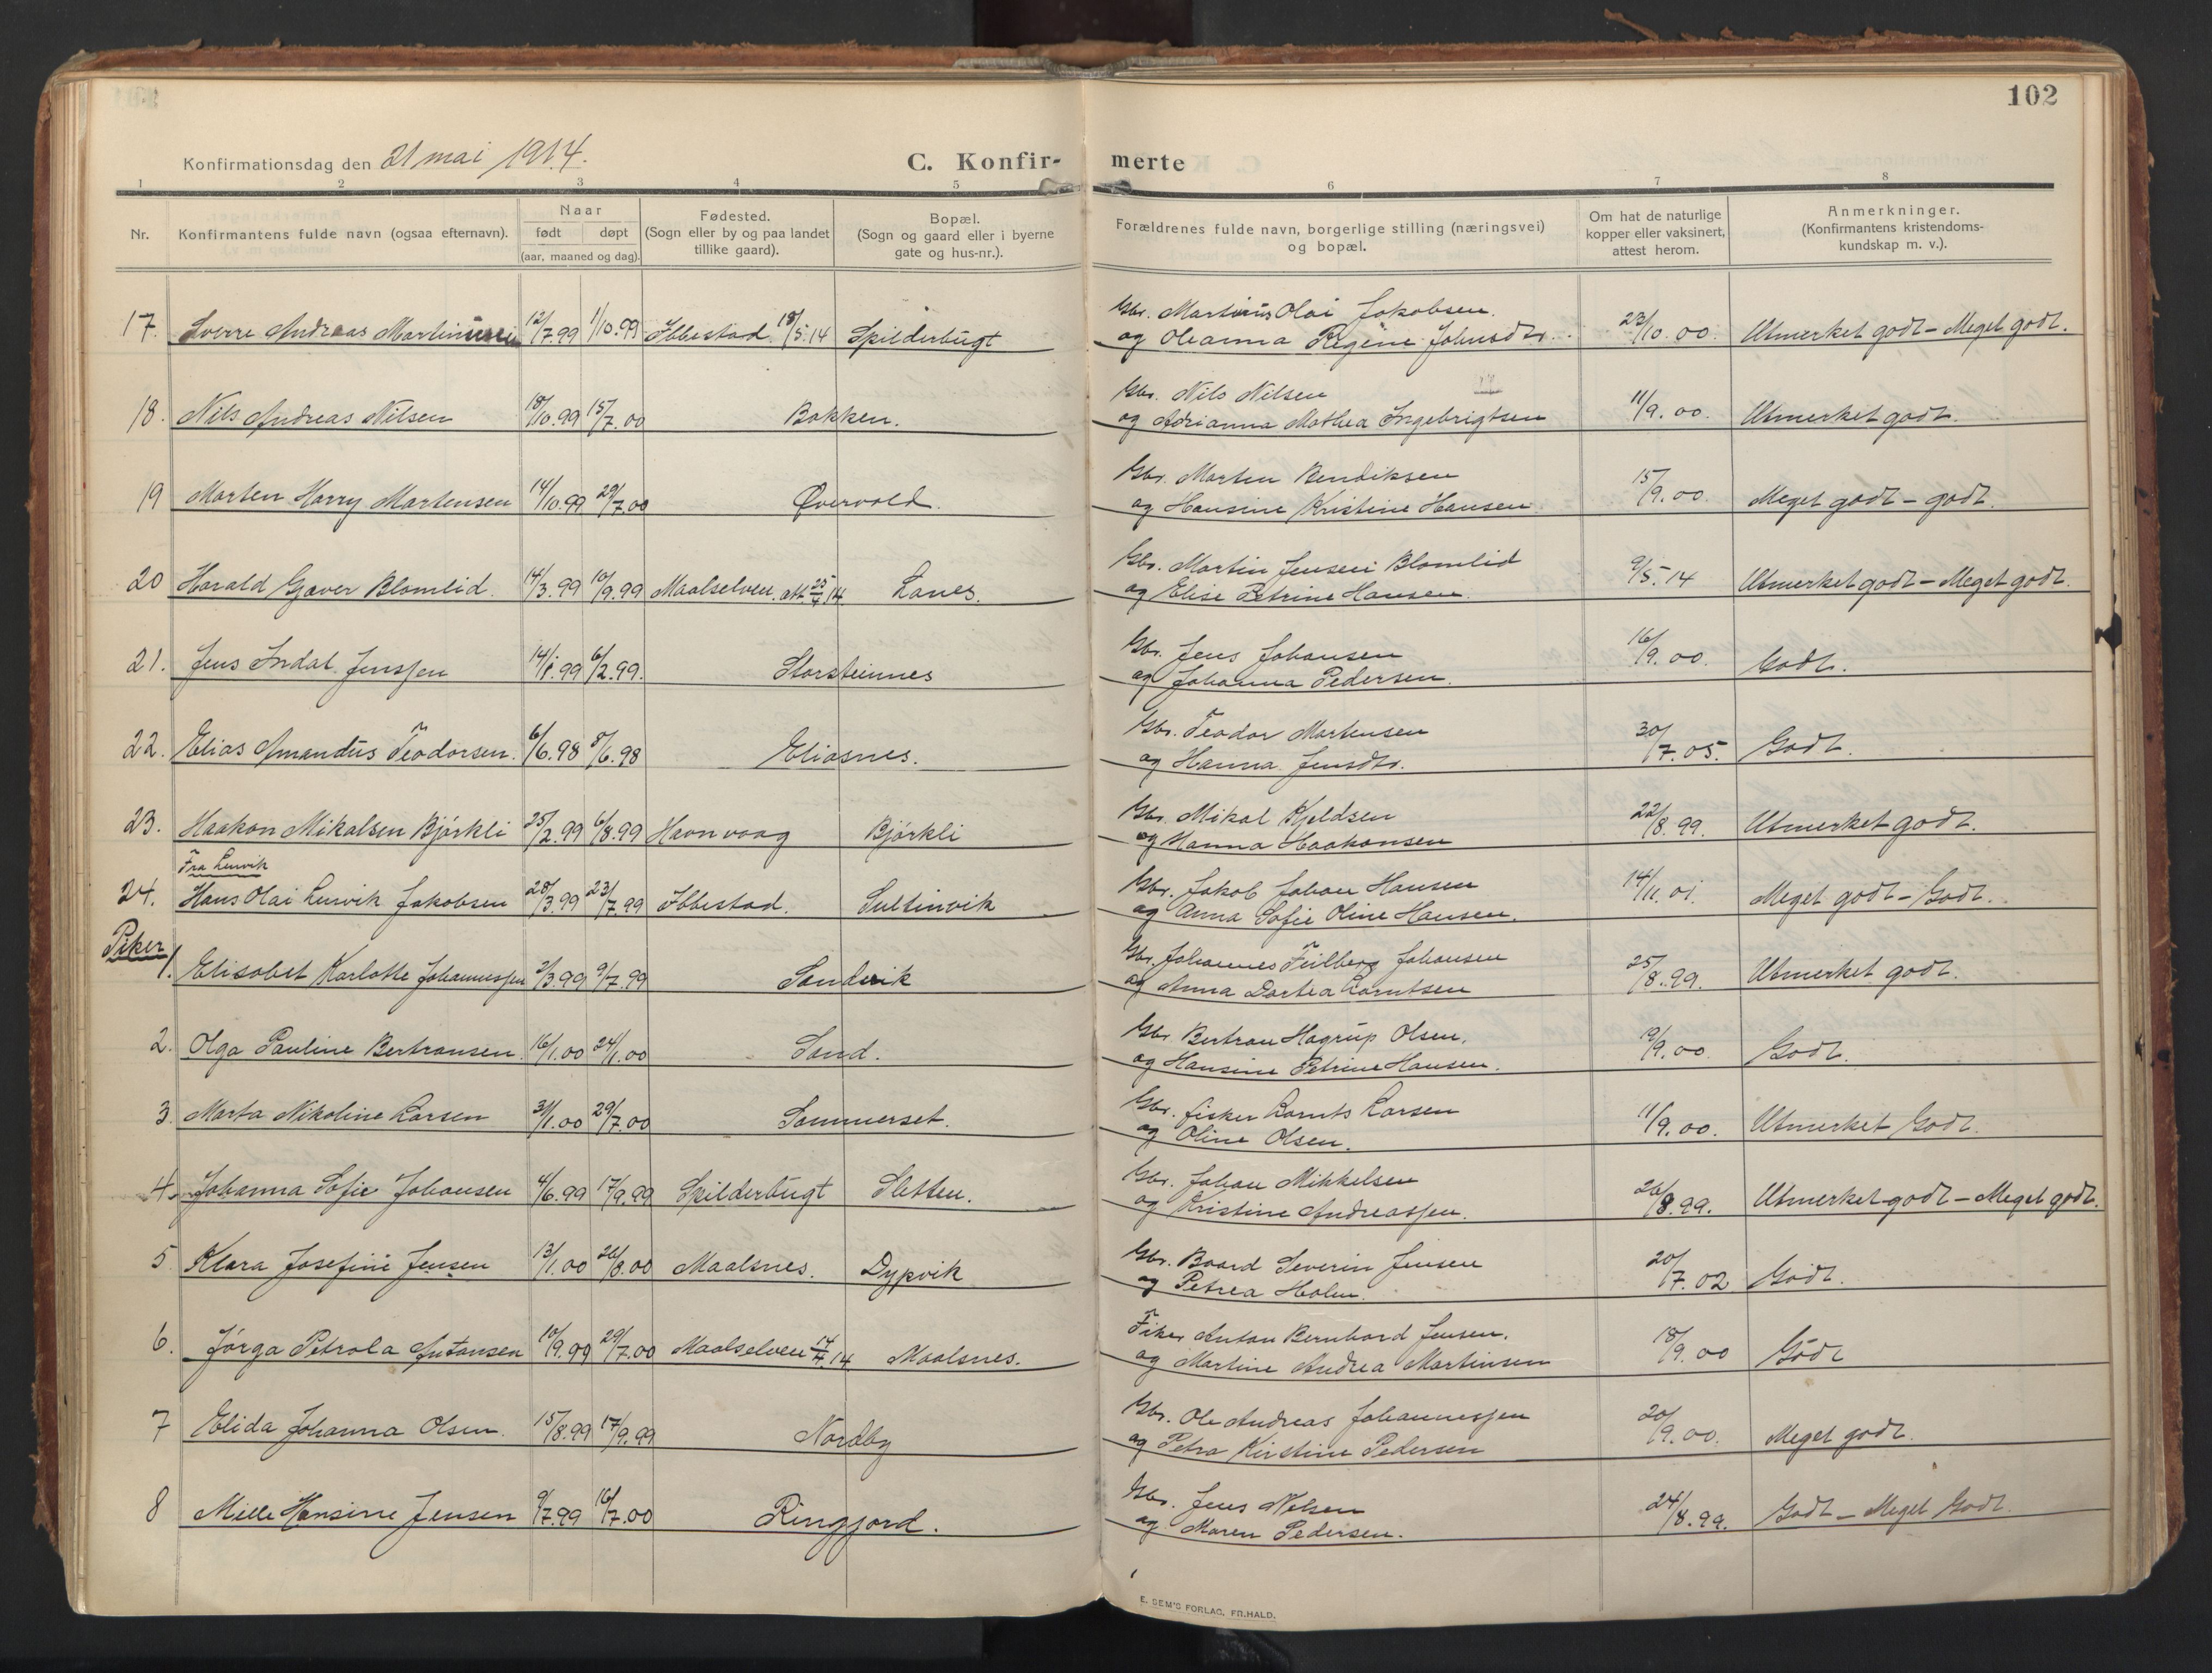 102
Konfirmationsdag den 21 mai 1914.
C. Konfir- merte
1 2 3 4 5 6 7 8
Nr. Konfirmantens fulde navn (ogsaa efternavn). Naar født døpt (aar, maaned og dag). Fødested. (Sogn eller by og paa landet tillike gaard). Bopæl. (Sogn og gaard eller i byerne gate og hus-nr.). Forældrenes fulde navn, borgerlige stilling (næringsvei) og bopæl. Om hat de naturlige kopper eller vaksinert, attest herom. Anmerkninger. (Konfirmantens kristendoms-kundskap m. v.).
17. Sverre Andreas Martinussen 12/7.99 1/10.99 Ibbestad 18/5.14 Spilderbugt Gbr. Martinus Olai Jakobsen. 23/10.00. Utmerket godt - Meget godt.
og Oleanna Regine Johnsdtr.
18. Nils Andreas Nilsen 18/10.99 15/7.00 Bakken. Gbr. Nils Nilsen 11/9.00. Utmerket godt.
og Adrianna Mathea Ingebrigtsen
19 Marten Harry Martensen 14/10.99 29/7.00 Øvervold. Gbr. Marten Bendiksen 15/9.00. Meget godt - godt.
og Hansine Kristine Hansen.
20 Harald Gjæver Blomlid. 14/3.99 10/9.99 Maalselven. att 25/4 14 Lanes. Gbr. Martin Jensen Blomlid 9/5.14 Utmerket godt - Meget godt.
og Elise Petrine Hansen.
21. Jens Indal Jenssen 14/1.99 6/2.99. Storsteinnes Gbr. Jens Johansen 16/9.00. Godt.
og Johanna Pedersen.
22. Elias Amandus Teodorsen. 6/6.98 8/6.98 Eliasnes. Gbr. Teodor Martensen 30/7.05. Godt.
og Hanna Jensdtr.
23. Haakon Mikalsen Bjørkli 25/2.99 6/8.99 Havnvaag Bjørkli Gbr. Mikal Kjeldsen 22/8.99. Utmerket godt.
og Hanna Haakonsen
Fra Lenvik
24. Hans Olai Lenvik Jakobsen 28/3.99 23/7.99 Ibbestad. Sultinvik Gbr. Jakob Johan Hansen 14/11.01. Meget godt - Godt.
og Anna Sofie Oline Hansen.
Piker
1. Elisabet Karlotte Johannessen 2/3.99 9/7.99 Sandvik Gbr. Johannes Feilberg Johansen 25/8.99. Utmerket godt.
og Anna Dortea Lorntsen
2. Olga Pauline Bertransen. 16/1.00 24/1.00 Sand. Gbr. Bertran Hagrup Olsen. 19/9.00. Godt.
og Hansine Petrine Hansen.
3. Marta Nikoline Larsen 31/1.00 29/7.00 Sommerset. Gbr. fisker Lornts Larsen 11/9.00. Utmerket Godt.
og Oline Olsen.
4. Johanna Sofie Johansen 4/6.99 17/9.99 Spilderbugt Sletten. Gbr. Johan Mikkelsen 26/8.99. Utmerket godt - Meget godt.
og Kristine Andreassen.
5. Klara Josefine Jensen 13/1.00 26/8.00 Maalsnes. Dypvik Gbr. Baard Severin Jensen 20/7.02 Godt.
og Petrea Holm.
6. Jørga Petrola Antonsen 10/9.99 29/7.00 Maalselven 14/4.14 Maalsnes. Fisker Anton Bernhard Jensen. 18/9.00 Godt
og Martine Andrea Martinsen
7 Elida Johanna Olsen. 15/8.99 17/9.99 Nordby Gbr. Ole Andreas Johannessen 20/9.00. Meget godt.
og Petra Kirstine Pedersen
8 Mille Hansine Jensen 9/7.99 16/7.00 Ringfjord. Gbr. Jens Nilsen 24/8.99. Godt - Meget Godt.
og Maren Pedersen.
E. SEM'S FORLAG, FR.HALD.